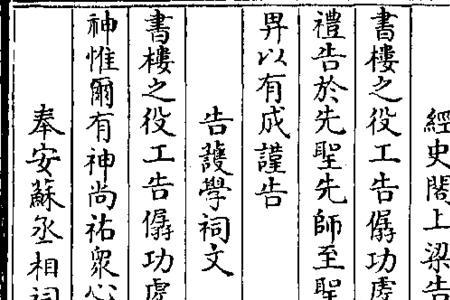 經史閣上梁告
書樓之役工告僝功虔
禮告於先聖先師至聖
畀以有成謹告
告護學祠文
書樓之役工告僝功虔
神惟爾有神尚祐眾心
奉安蘇丞相祠